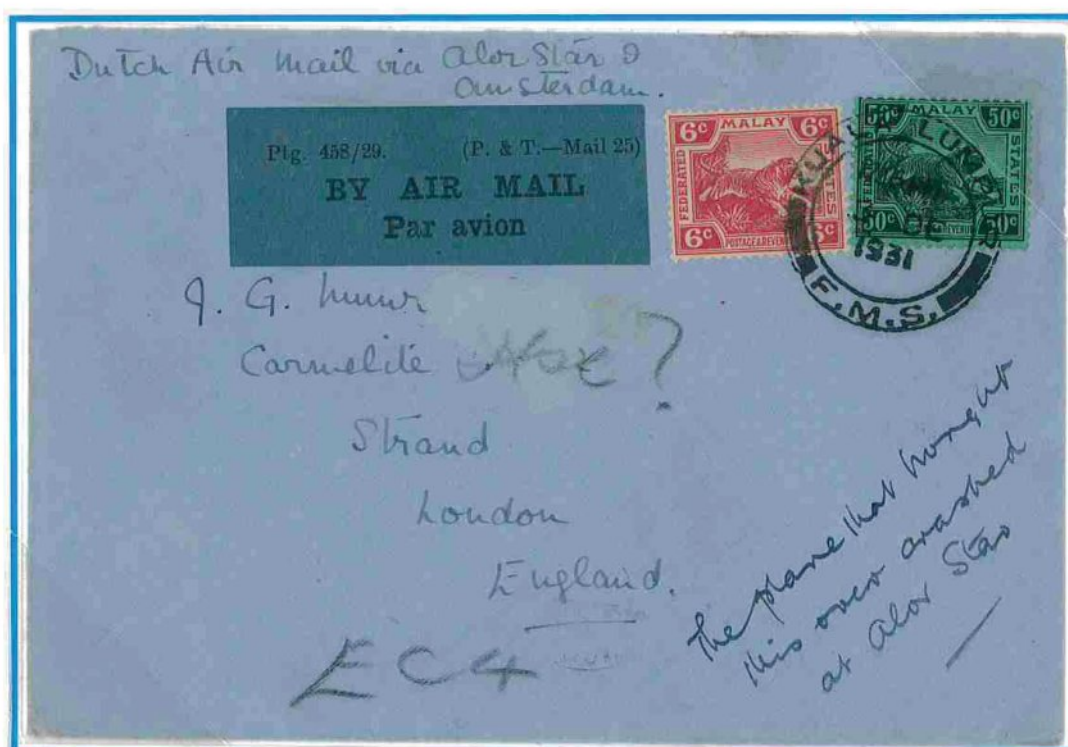 Dutch Air Mail via Alor Star &
Amsterdam.
Ptg. 458/29. (P. & T.—Mail 25)
BY AIR MAIL
Par avion
6c MALAY 6c
FEDERATED STATES
6c POSTAGE & REVENUE 6c
50c MALAY 50c
FEDERATED STATES
50c REVENUE 50c
KUALA LUMPUR
1931
F.M.S.
J. G.
Carmelite ?
Strand
London
England.
EC4
The plane that brought
this over crashed
at Alor Star